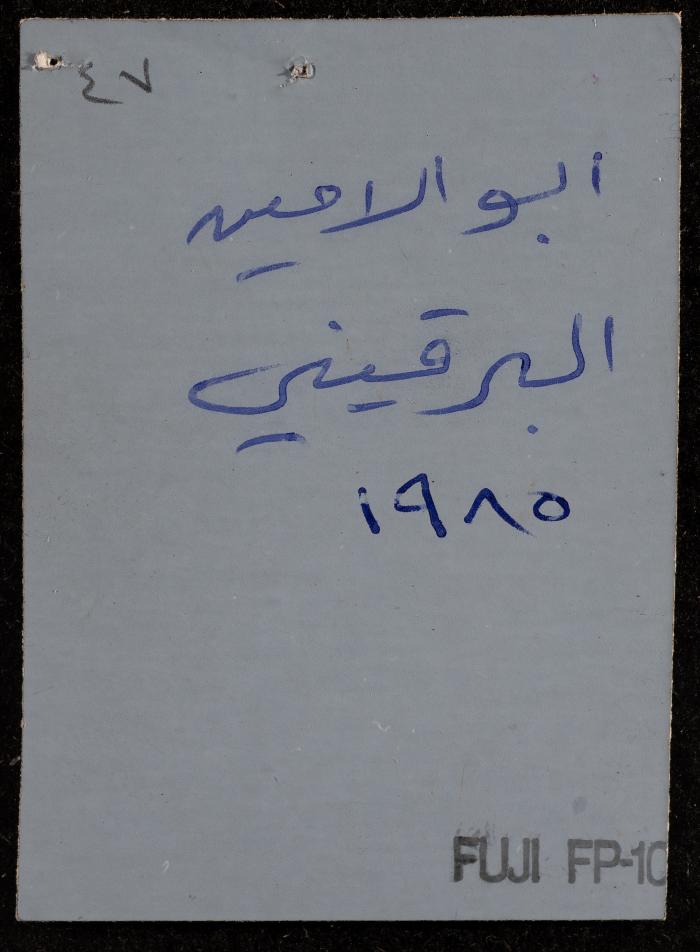 ٤٧
ابو الامين
البرقيني
١٩٨٥
FUJI FP-10